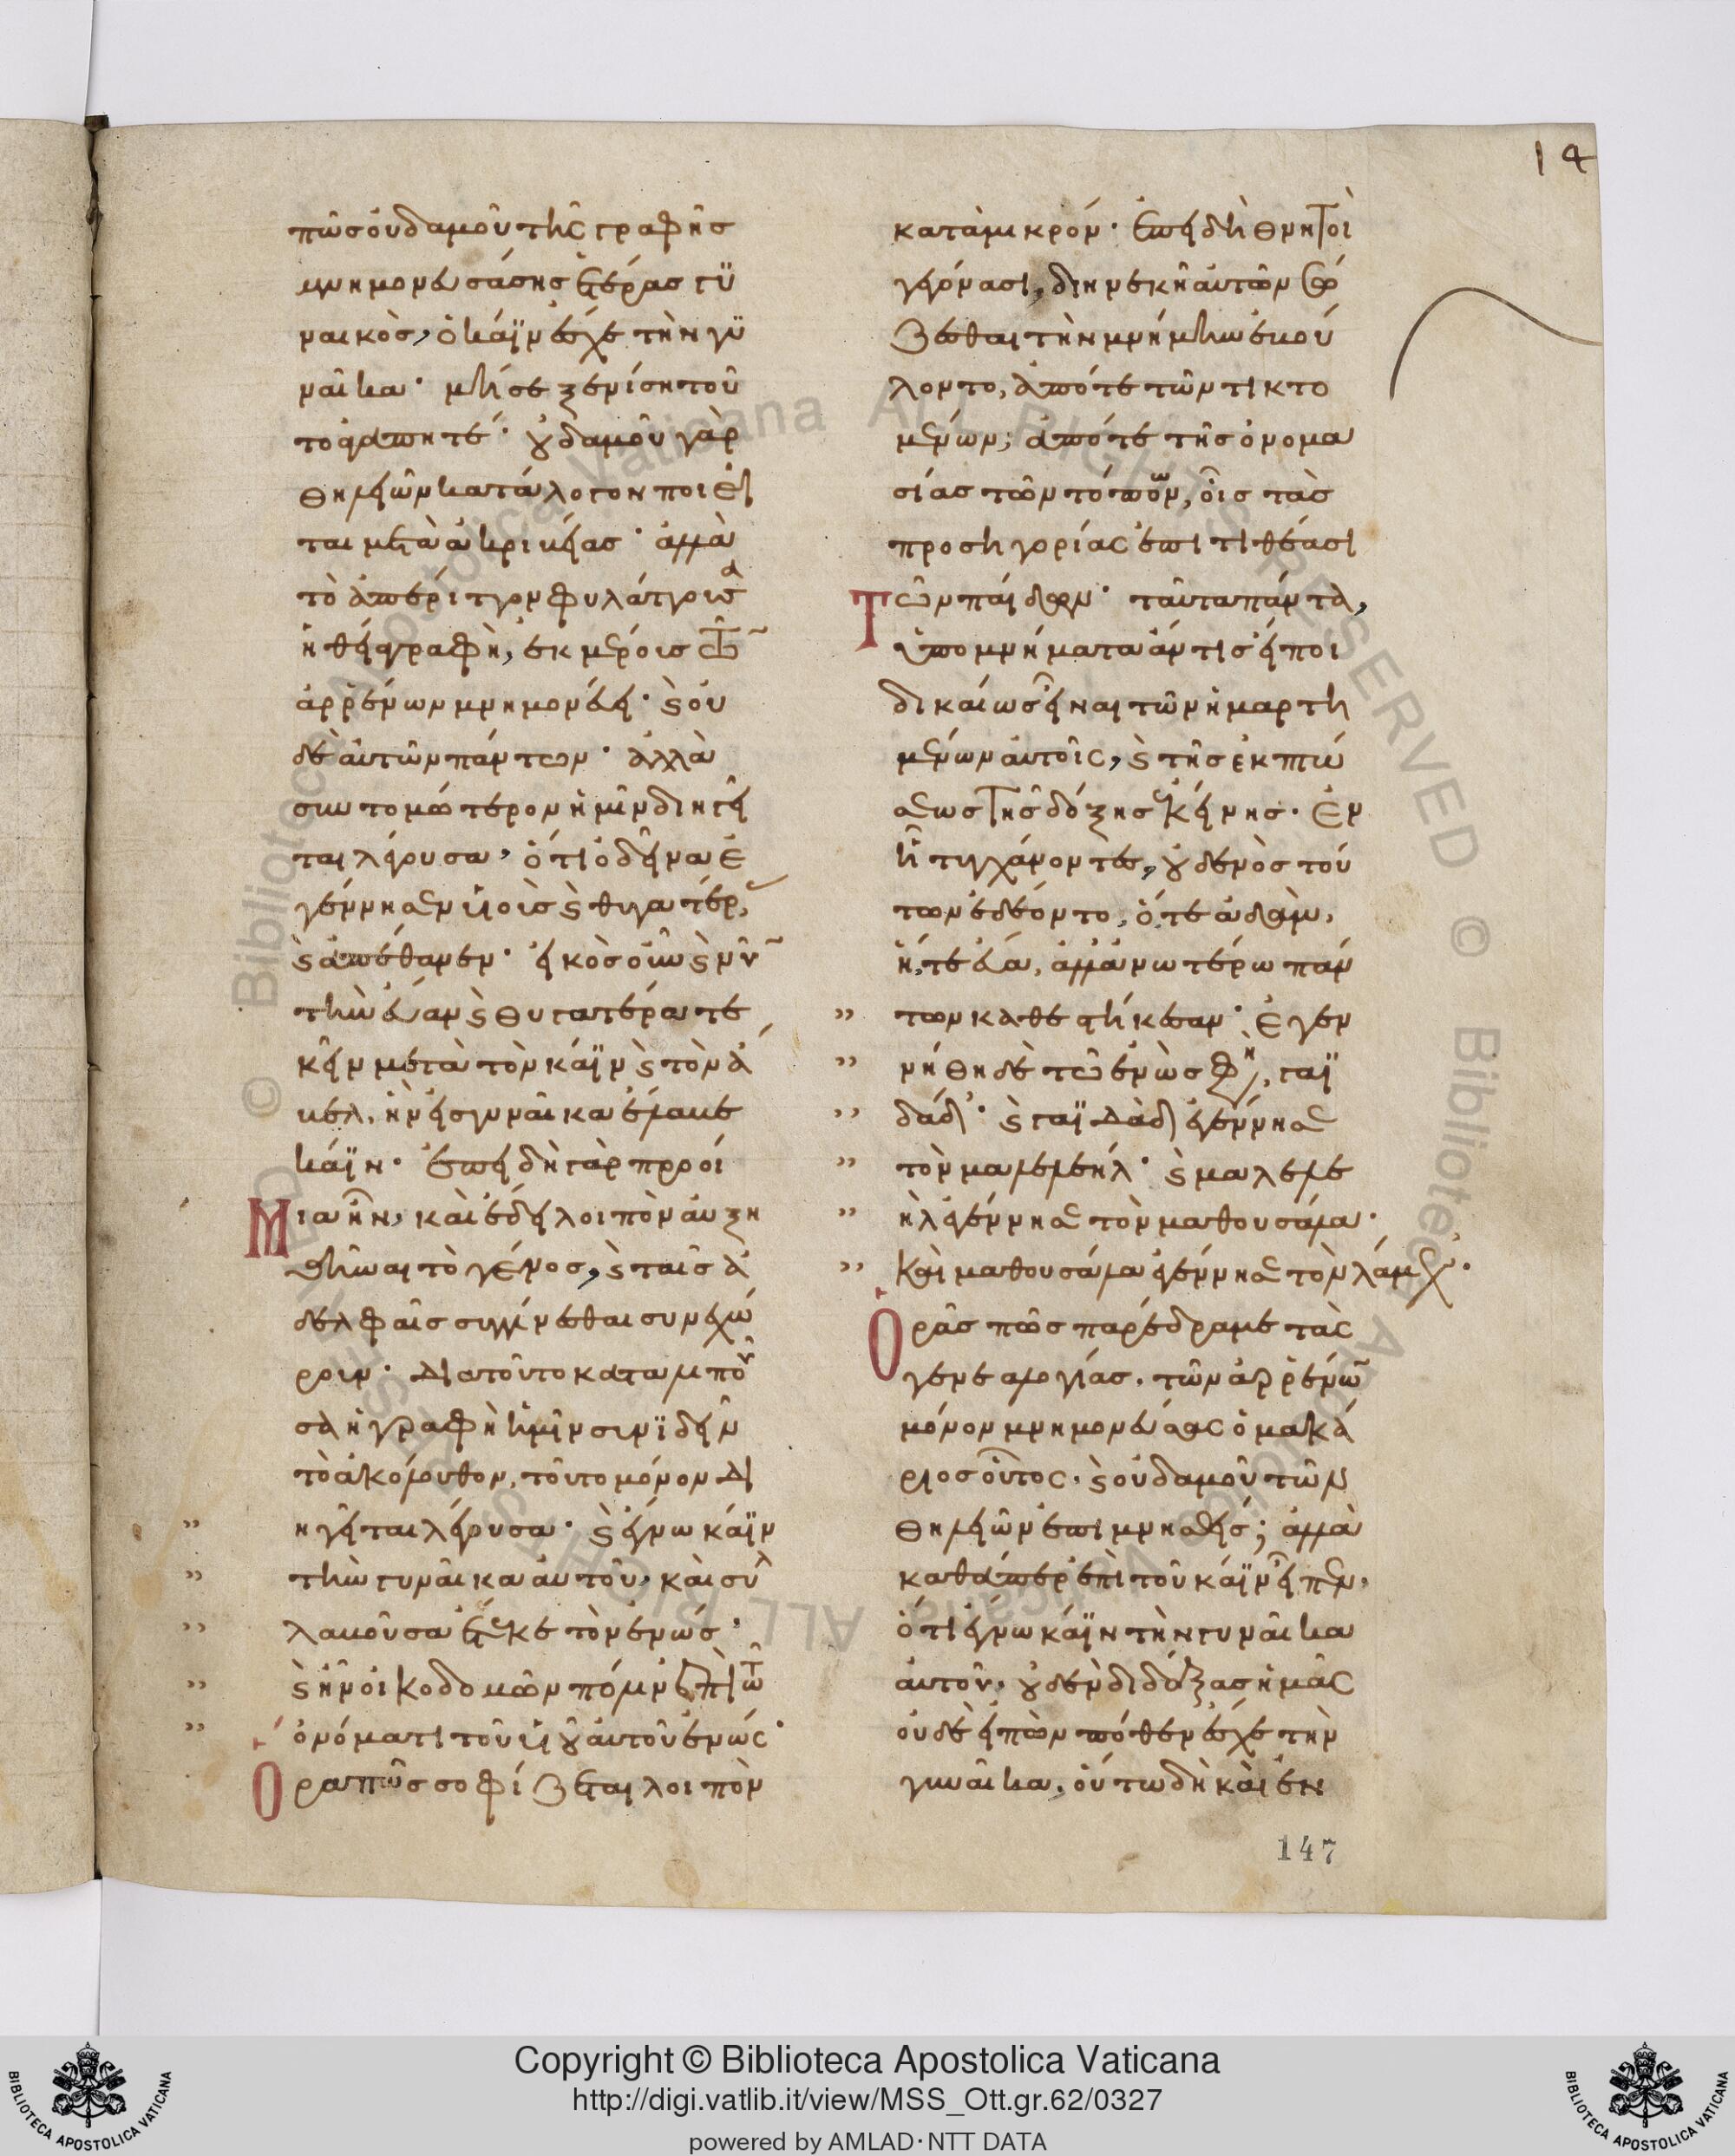 14
πῶς οὐδαμοῦ τῆς γραφῆς
μνημονευσάσης ἑτέρας γυ
ναικὸς, ὁ κάϊν ἔσχε τὴν γυ
ναῖκα· μή σε ξενίσῃ τοῦ
το ἀγαπητέ· οὐδαμοῦ γὰρ
θηλειῶν κατάλογον ποιεῖ
ται μετὰ ἀκριβείας· ἀλλὰ
τὸ ἀπέριττον φυλάττουσα
ἡ θεία γραφὴ, ἐκ μέρους τῶν
ἀρρένων μνημονεύει· καὶ οὐ
δὲ αὐτῶν πάντων· ἀλλὰ
συντομώτερον ἡμῖν διηγεῖ
ται λέγουσα, ὅτι ὁ δεῖνα ἐ
γέννησεν υἱοὺς καὶ θυγατέρ
καὶ ἀπέθανεν· εἰκὸς οὖν καὶ νῦν
τὴν εὔαν καὶ θυγατέρα τε
κεῖν μετὰ τὸν κάϊν καὶ τὸν ἄ
βελ, ἣν εἰς γυναῖκα ἔλαβε
κάϊν· ἐπειδὴ γὰρ προοί
μια ἦν, καὶ ἔδει λοιπὸν αὐξη
θῆναι τὸ γένος, καὶ ταῖς ἀ
δελφαῖς συγγίνεσθαι συνεχώ
ρουν· διατοῦτο καταλιποῦ
σα ἡ γραφὴ ἡμῖν συνϊδεῖν
τὸ ἀκόλουθον, τοῦτο μόνον δι
ηγεῖται λέγουσα· καὶ ἔγνω κάϊν
τὴν γυναῖκα αὐτοῦ, καὶ συλ
λαβοῦσα ἔτεκε τὸν ἐνώς·
καὶ ἦν οἰκοδομῶν πόλιν ἐπὶ τῷ
ὀνόματι τοῦ υἱοῦ αὐτοῦ ἐνώς·
Ὅρα πῶς σοφίζεται λοιπὸν
κατὰ μικρόν· ἐπειδὴ θνητοὶ
γεγόνασι, διηνεκῆ αὐτῶν σώ
ζεσθαι τὴν μνήμην ἐβού
λοντο, ἀπό τε τῶν τικτο
μένων, ἀπό τε τῆς ὀνομα
σίας τῶν τόπων, οἷς τὰς
προσηγορίας ἐπιτιθέασι
τῶν παίδων· ταῦτα πάντα,
ὑπομνήματα ἄν τις εἴποι
δικαίως εἶναι τῶν ἡμαρτη
μένων αὐτοῖς, καὶ τῆς ἐκπτώ
σεως τῆς δόξης ἐκείνης· ἐν
ᾗ τυγχάνοντες, οὐδενὸς τού
των ἐδέοντο, ὅτε ἀδὰμ,
ἥ, τε εὔα, ἀλλὰ ἀνωτέρω πάν
των καθεστήκεσαν· ἐγεν
νήθη δὲ τῷ ἐνὼς φη, γαϊ
δάδ· καὶ γαϊδὰδ ἐγέννησε
τὸν μαλελεήλ· καὶ μαλελε
ὴλ ἐγέννησε τὸν μαθουσάλα·
Καὶ μαθουσάλα ἐγέννησε τὸν λάμεχ·
Ὁρᾶς πῶς παρέδραμε τὰς
γενεαλογίας, τῶν ἀρρένων
μόνον μνημονεύσας ὁ μακά
ριος οὗτος, καὶ οὐδαμοῦ τῶν
θηλειῶν ἐπιμνησθείς; ἀλλὰ
καθάπερ ἐπὶ τοῦ κάϊν εἶπεν,
ὅτι ἔγνω κάϊν τὴν γυναῖκα
αὐτοῦ, οὐδὲν διδάξας ἡμᾶς
οὐδὲ εἰπὼν πόθεν ἔσχε τὴν
γυναῖκα, οὕτω δὴ καὶ ἐν
147
© Biblioteca Apostolica Vaticana ALL RIGHTS RESERVED
Copyright © Biblioteca Apostolica Vaticana
http://digi.vatlib.it/view/MSS_Ott.gr.62/0327
powered by AMLAD·NTT DATA
BIBLIOTECA APOSTOLICA VATICANA
BIBLIOTECA APOSTOLICA VATICANA